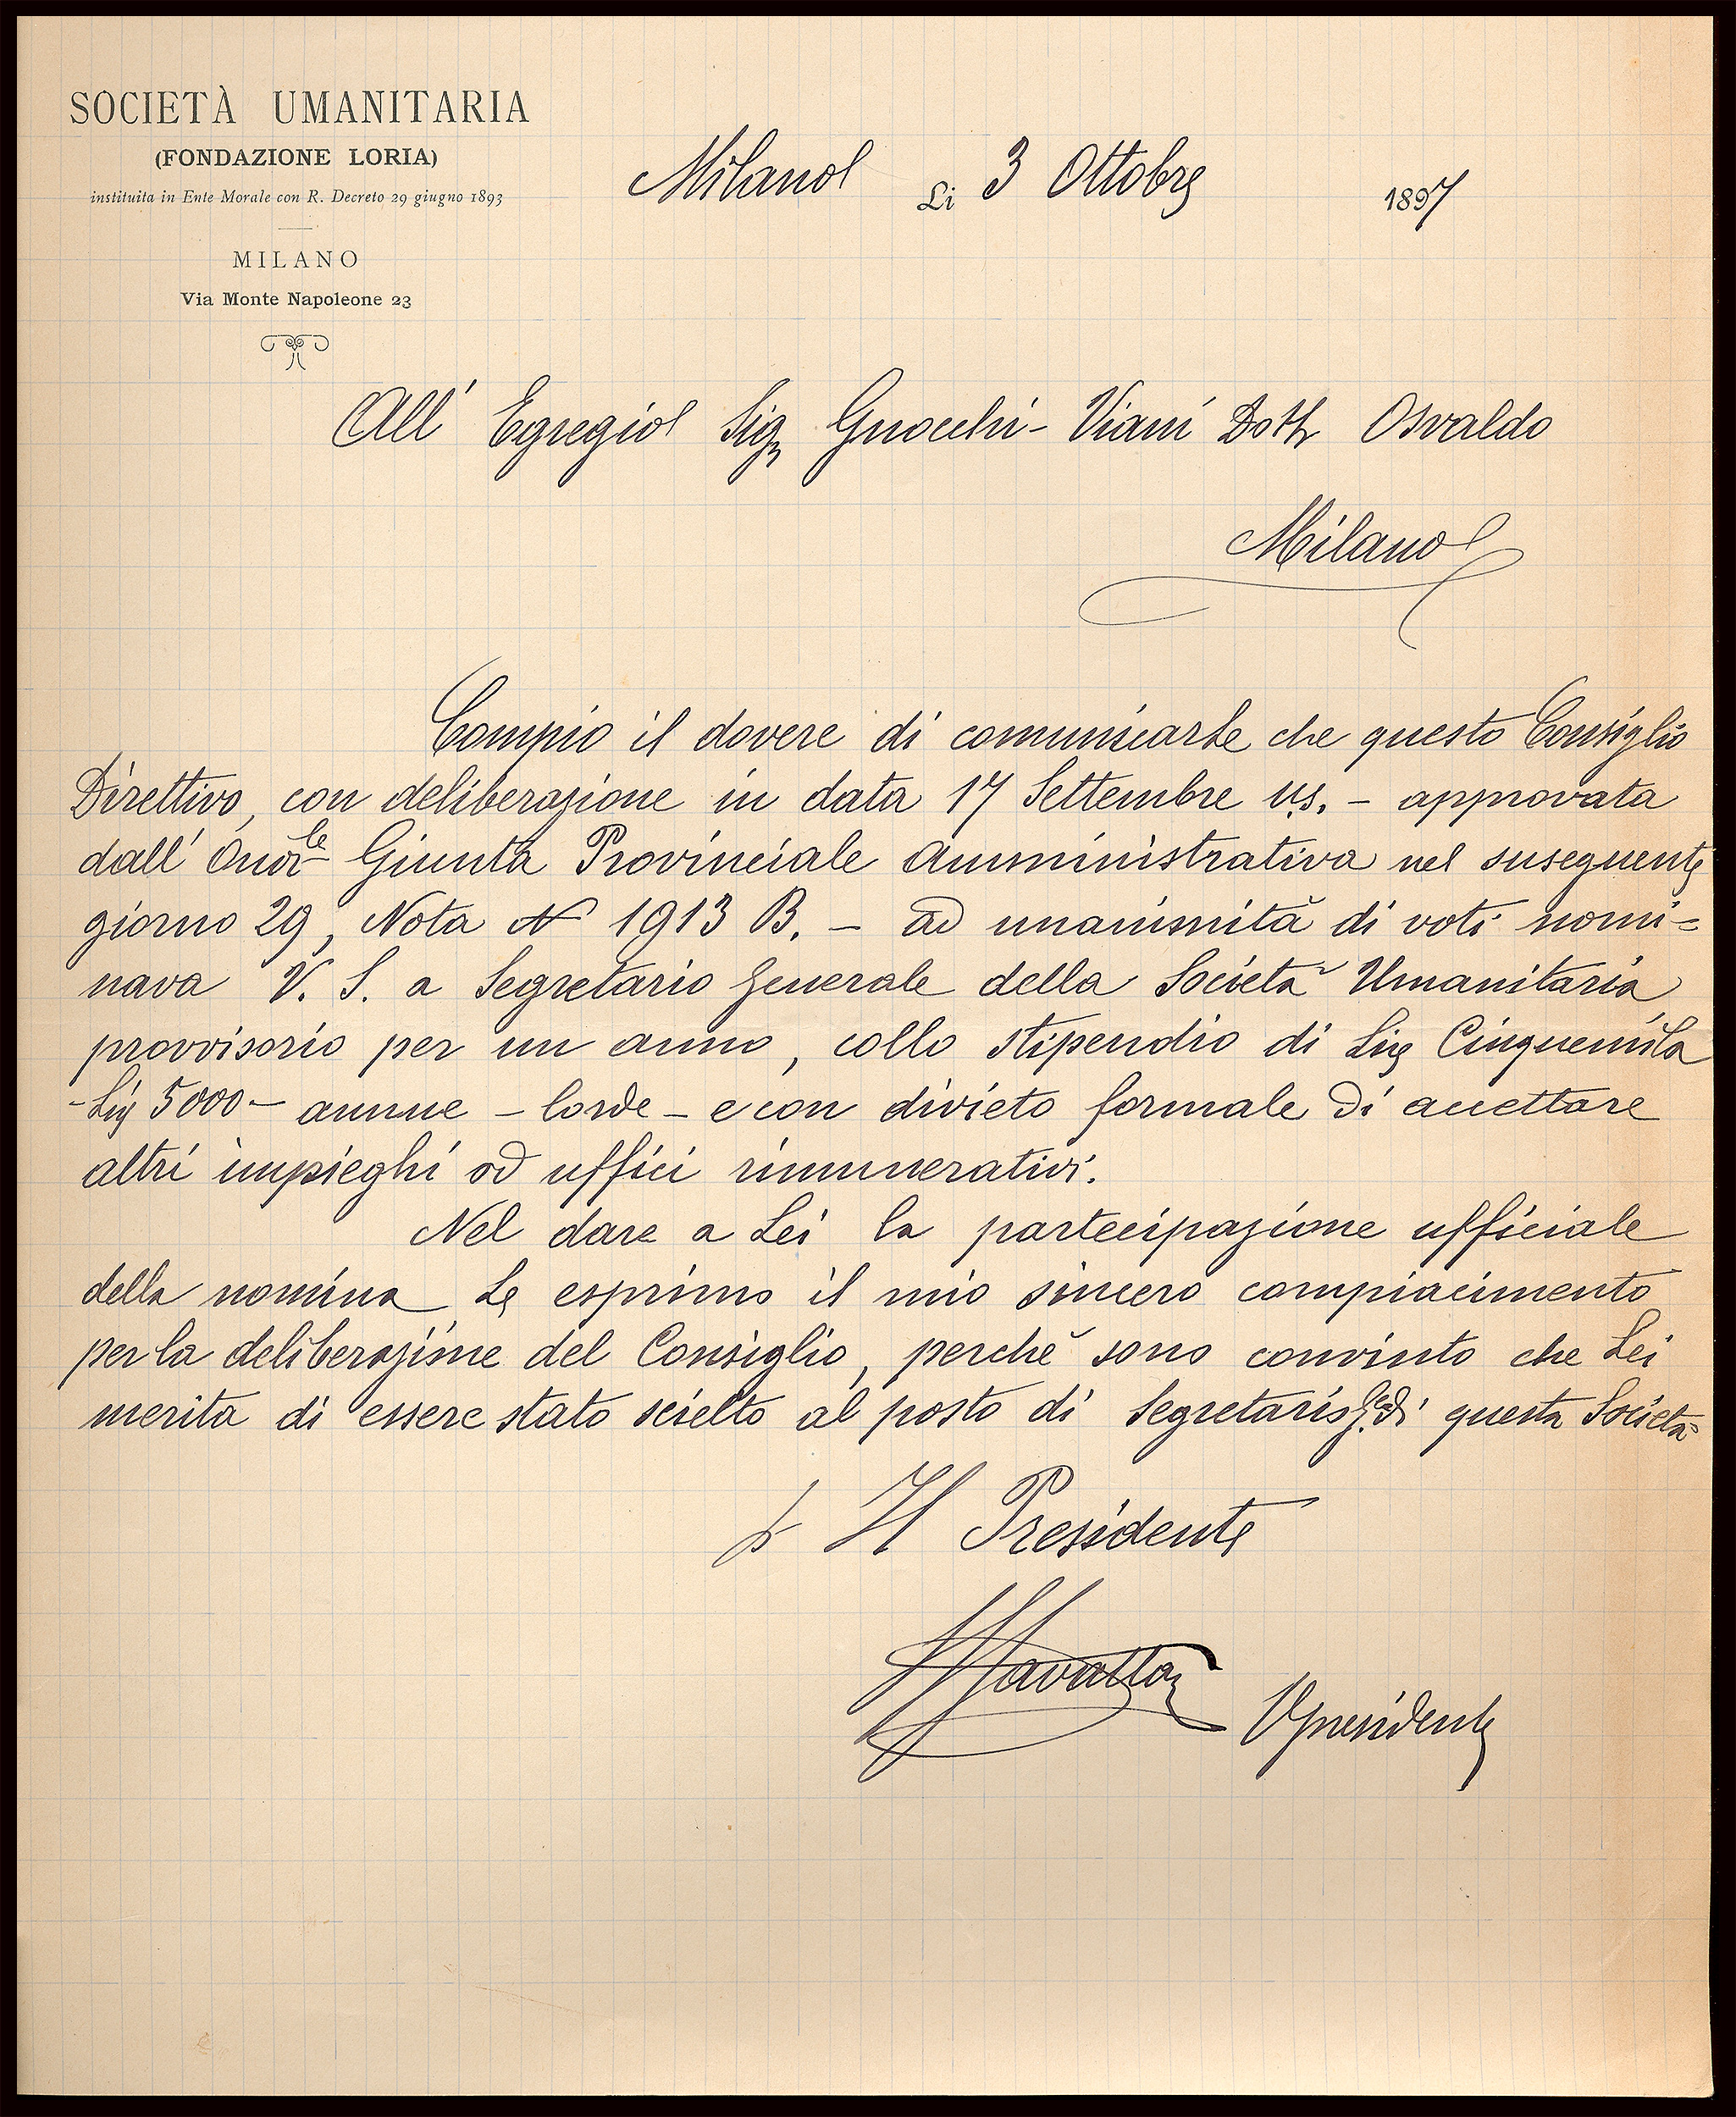 SOCIETÀ UMANITARIA
(FONDAZIONE LORIA)
instituita in Ente Morale con R. Decreto 29 giugno 1893
MILANO
Via Monte Napoleone 23
Milano Li 3 Ottobre 1897
All' Egregio Sigr Gnocchi-Viani Dottr Osvaldo
Milano
Compio il dovere di comunicarle che questo Consiglio
Direttivo, con deliberazione in data 17 Settembre u.s. - approvata
dall' Onorle Giunta Provinciale Amministrativa nel susseguente
giorno 29, Nota N 1913 B. - ad unanimità di voti nomi=
nava V. S. a Segretario Generale della Società Umanitaria
provvisorio per un anno, collo stipendio di Lire Cinquemila
- Lire 5000 - annue - lorde - e con divieto formale di accettare
altri impieghi od uffici rimunerativi.
Nel dare a Lei la partecipazione ufficiale
della nomina Le esprimo il mio sincero compiacimento
per la deliberazione del Consiglio, perchè sono convinto che Lei
merita di essere stato scielto al posto di Segretario Ge. di questa Società
p Il Presidente
Vpresidente